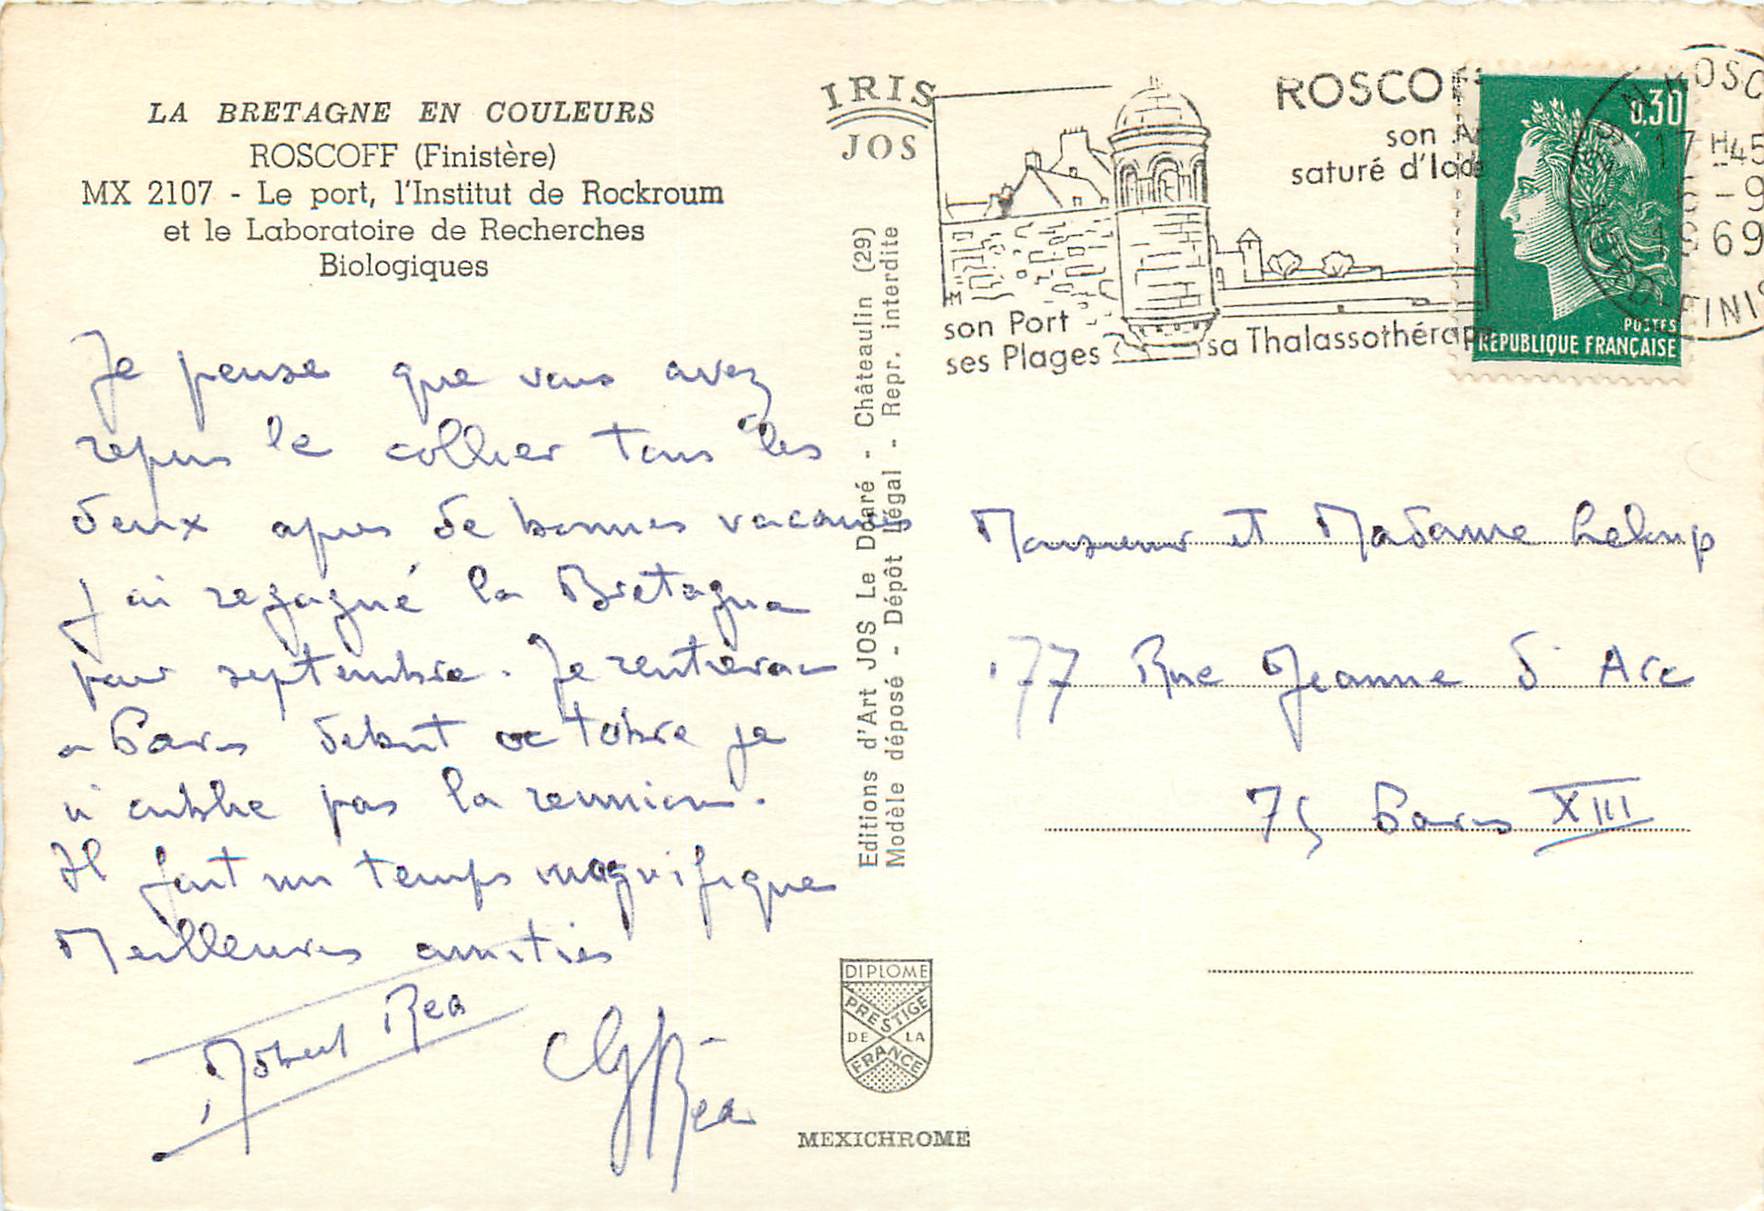 LA BRETAGNE EN COULEURS
ROSCOFF (Finistère)
MX 2107 - Le port, l'Institut de Rockroum
et le Laboratoire de Recherches
Biologiques
Je pense que vous avez
repris le collier tous les
deux apres de bonnes vacances
J'ai regagné la Bretagne
pour septembre. Je rentrerai
a Paris debut octobre je
n'oublie pas la reunion.
Il fait un temps magnifique
Meilleures amitiés
Robert Rea
Rea
IRIS
JOS
Editions d'Art JOS Le Doaré - Châteaulin (29)
Modèle déposé - Dépôt légal - Repr. interdite
DIPLOME
PRESTIGE
DE LA
FRANCE
MEXICHROME
ROSCOF
son A
saturé d'Iode
son Port
ses Plages
sa Thalassothérap
0,30
POSTES
REPUBLIQUE FRANÇAISE
ROSC
17 H 45
6 - 9
1969
FINIS
Monsieur et Madame Leloup
177 Rue Jeanne d'Arc
75 Paris XIII